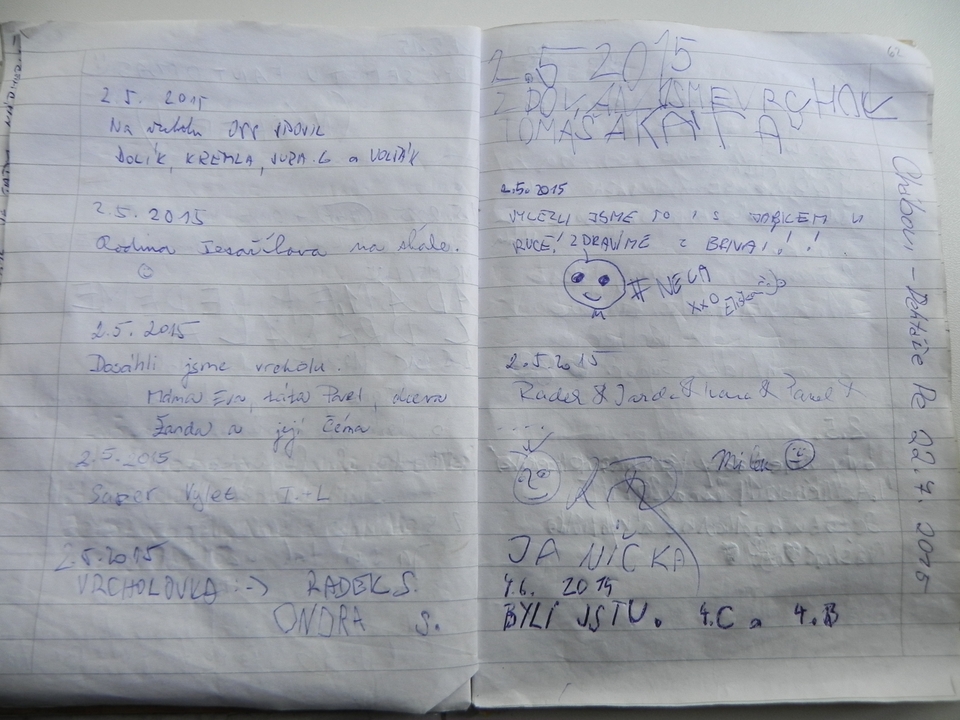 2.5. 2015
Na
DOLÍK, KREMLA, JURA G. a VOLŤÁK
2.5. 2015
Rodina na
2.5.2015
Dosáhli jsme vrcholu.
Máma Eva, táta Pavel, dcera
Žanda a její Čéma
2.5.2015
Super Výlet I.+L
2.5.2015
VRCHOLOVKA :-) RADEK S.
ONDRA S.
62
2.5 2015
ZDOLALI JSME VRCHOL
TOMÁŠ A KÁŤA
2.5.2015
VYLEZLI JSME TO I S JABLKEM V
RUCE! ZDRAVÍME Z BRNA!!!
#NELA
XXO
2.5.2015
Radek & Jarda & Ivana & Pavel
JA NIČKA
4.6. 2015
BYLI JSTU. 4.C a 4.B
22.7. 2015